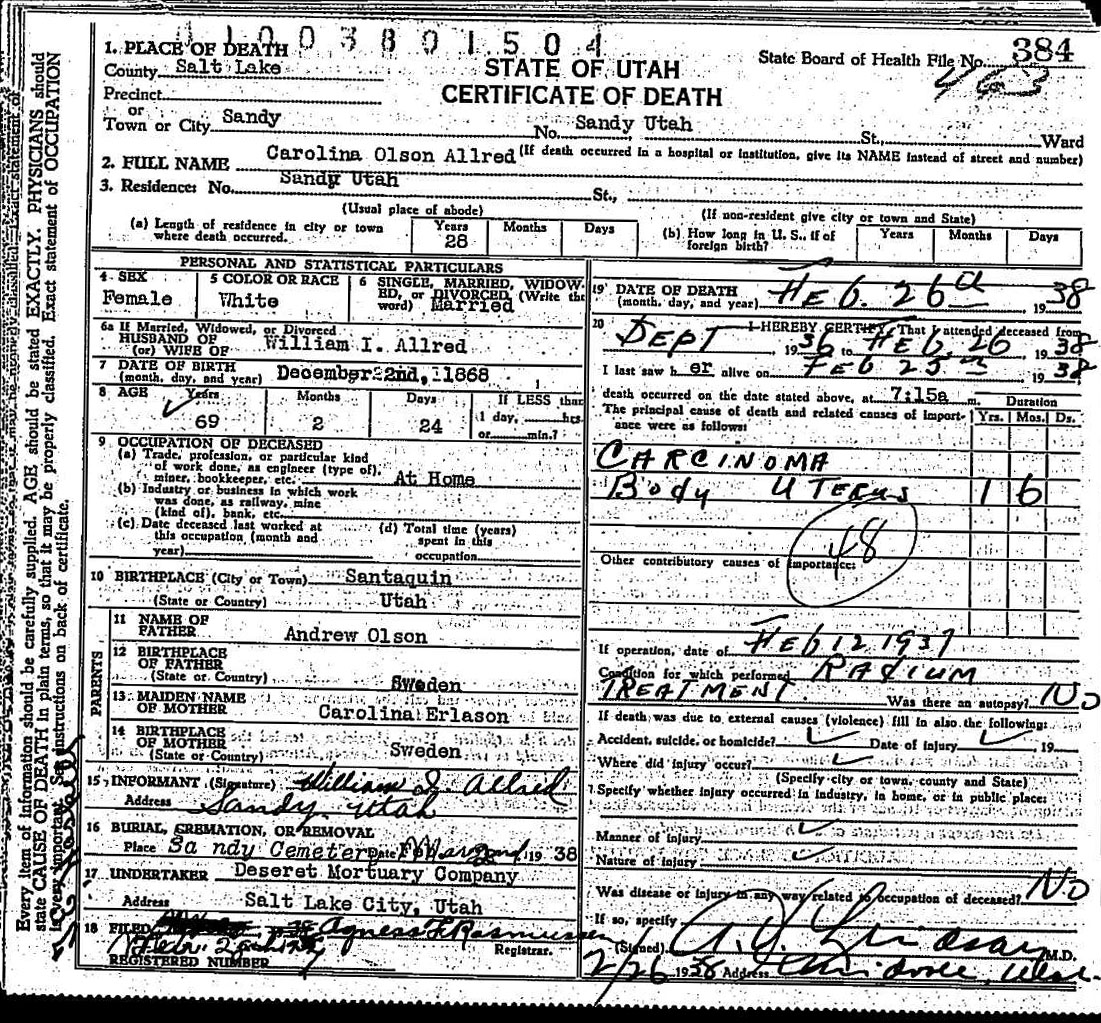 01003801504
1. PLACE OF DEATH
County Salt Lake
STATE OF UTAH
CERTIFICATE OF DEATH
State Board of Health File No. 384
463
Precinct
or
Town or City Sandy No. Sandy Utah St., Ward
(If death occurred in a hospital or institution, give its NAME instead of street and number)
2. FULL NAME Carolina Olson Allred
3. Residence: No. Sandy Utah St.,
(Usual place of abode) (If non-resident give city or town and State)
(a) Length of residence in city or town where death occurred. Years 28 Months Days
(b) How long in U. S., if of foreign birth? Years Months Days
PERSONAL AND STATISTICAL PARTICULARS
4 SEX Female
5 COLOR OR RACE White
6 SINGLE, MARRIED, WIDOWED, or DIVORCED (Write the word) Married
6a If Married, Widowed, or Divorced
HUSBAND OF
(or) WIFE OF William I. Allred
7 DATE OF BIRTH
(month, day, and year) December 22nd, 1868
8 AGE Years 69 Months 2 Days 24 If LESS than 1 day, hrs. or min.?
9 OCCUPATION OF DECEASED
(a) Trade, profession, or particular kind
of work done, as engineer (type of),
miner, bookkeeper, etc. At Home
(b) Industry or business in which work
was done, as railway, mine
(kind of), bank, etc.
(c) Date deceased last worked at
this occupation (month and
year)
(d) Total time (years)
spent in this
occupation
10 BIRTHPLACE (City or Town) Santaquin
(State or Country) Utah
PARENTS
11 NAME OF
FATHER Andrew Olson
12 BIRTHPLACE
OF FATHER
(State or Country) Sweden
13 MAIDEN NAME
OF MOTHER Carolina Erlason
14 BIRTHPLACE
OF MOTHER
(State or Country) Sweden
15 INFORMANT (Signature) William I. Allred
Address Sandy, Utah
16 BURIAL, CREMATION, OR REMOVAL
Place Sandy Cemetery Date Mar 2nd 1938
17 UNDERTAKER Deseret Mortuary Company
Address Salt Lake City, Utah
18 FILED Agness F Rasmussen
Registrar.
REGISTERED NUMBER 7
19 DATE OF DEATH
(month, day, and year) FEb. 26th 1938
20 I HEREBY CERTIFY That I attended deceased from
DEPT 1936 to FEb. 26 1938
I last saw her alive on FEb 25th 1938
death occurred on the date stated above, at 7:15a m.
The principal cause of death and related causes of importance were as follows:
Duration
Yrs. Mos. Ds.
CARCINOMA
Body UTERUS 1 6
48
Other contributory causes of importance:
If operation, date of FEb 12 1937
Condition for which performed RADIUM
TREATMENT Was there an autopsy? NO
If death was due to external causes (violence) fill in also the following:
Accident, suicide, or homicide? Date of injury 19
Where did injury occur?
(Specify city or town, county and State)
Specify whether injury occurred in industry, in home, or in public place:
Manner of injury
Nature of injury
Was disease or injury in any way related to occupation of deceased? NO
If so, specify
(Signed) A. J. Lindsay M.D.
2/26 1938 Address
Every item of information should be carefully supplied. AGE should be stated EXACTLY. PHYSICIANS should
state CAUSE OF DEATH in plain terms, so that it may be properly classified. Exact statement of OCCUPATION
is very important. See instructions on back of certificate.